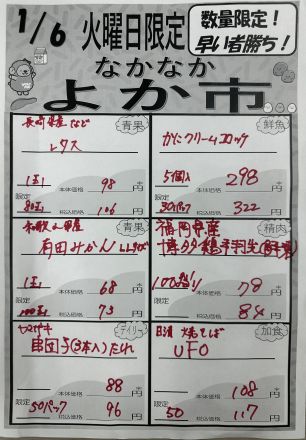 1/6 火曜日限定
数量限定！
早い者勝ち！
なかなか
よか市
青果
長崎県産など
レタス
1玉
本体価格 98 円
限定 80玉
税込価格 106 円
鮮魚
かにクリームコロッケ
5個入
本体価格 298 円
限定 30パック
税込価格 322 円
青果
和歌山県産
有田みかん
1玉
本体価格 68 円
限定 100玉
税込価格 73 円
精肉
福岡県産
100g当り
本体価格 78 円
限定
税込価格 84 円
デイリー
ヤマザキ
串団子(3本入)たれ
本体価格 88 円
限定 50パック
税込価格 96 円
加食
日清 焼そば
UFO
本体価格 108 円
限定 50
税込価格 117 円